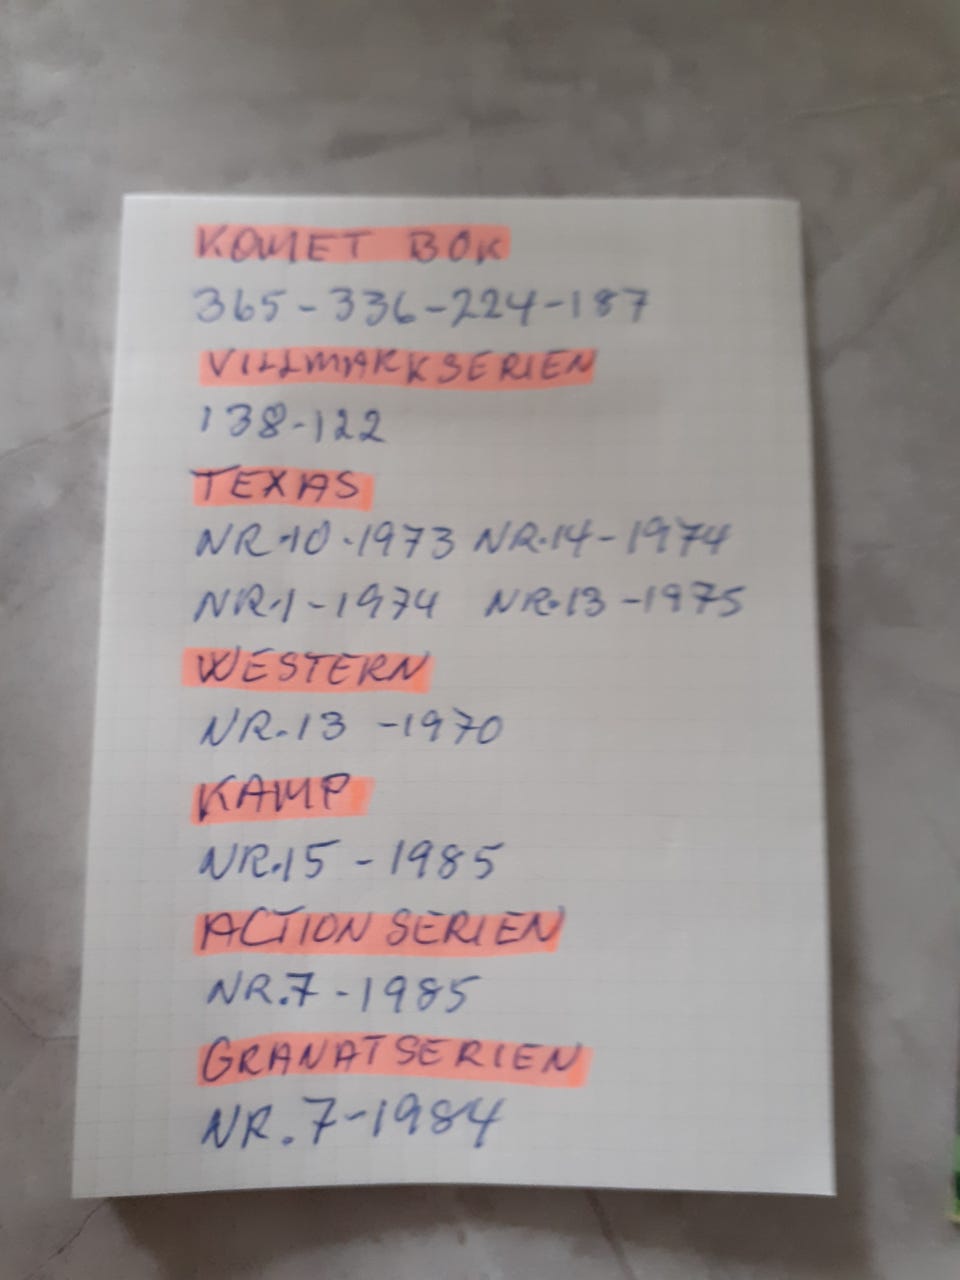 KOMET BOK
365-336-224-187
VILLMARKSERIEN
138-122
TEXAS
NR.10.1973 NR.14-1974
NR.1-1974 NR.13-1975
WESTERN
NR.13-1970
KAMP
NR.15-1985
ACTION SERIEN
NR.7-1985
GRANATSERIEN
NR.7-1984